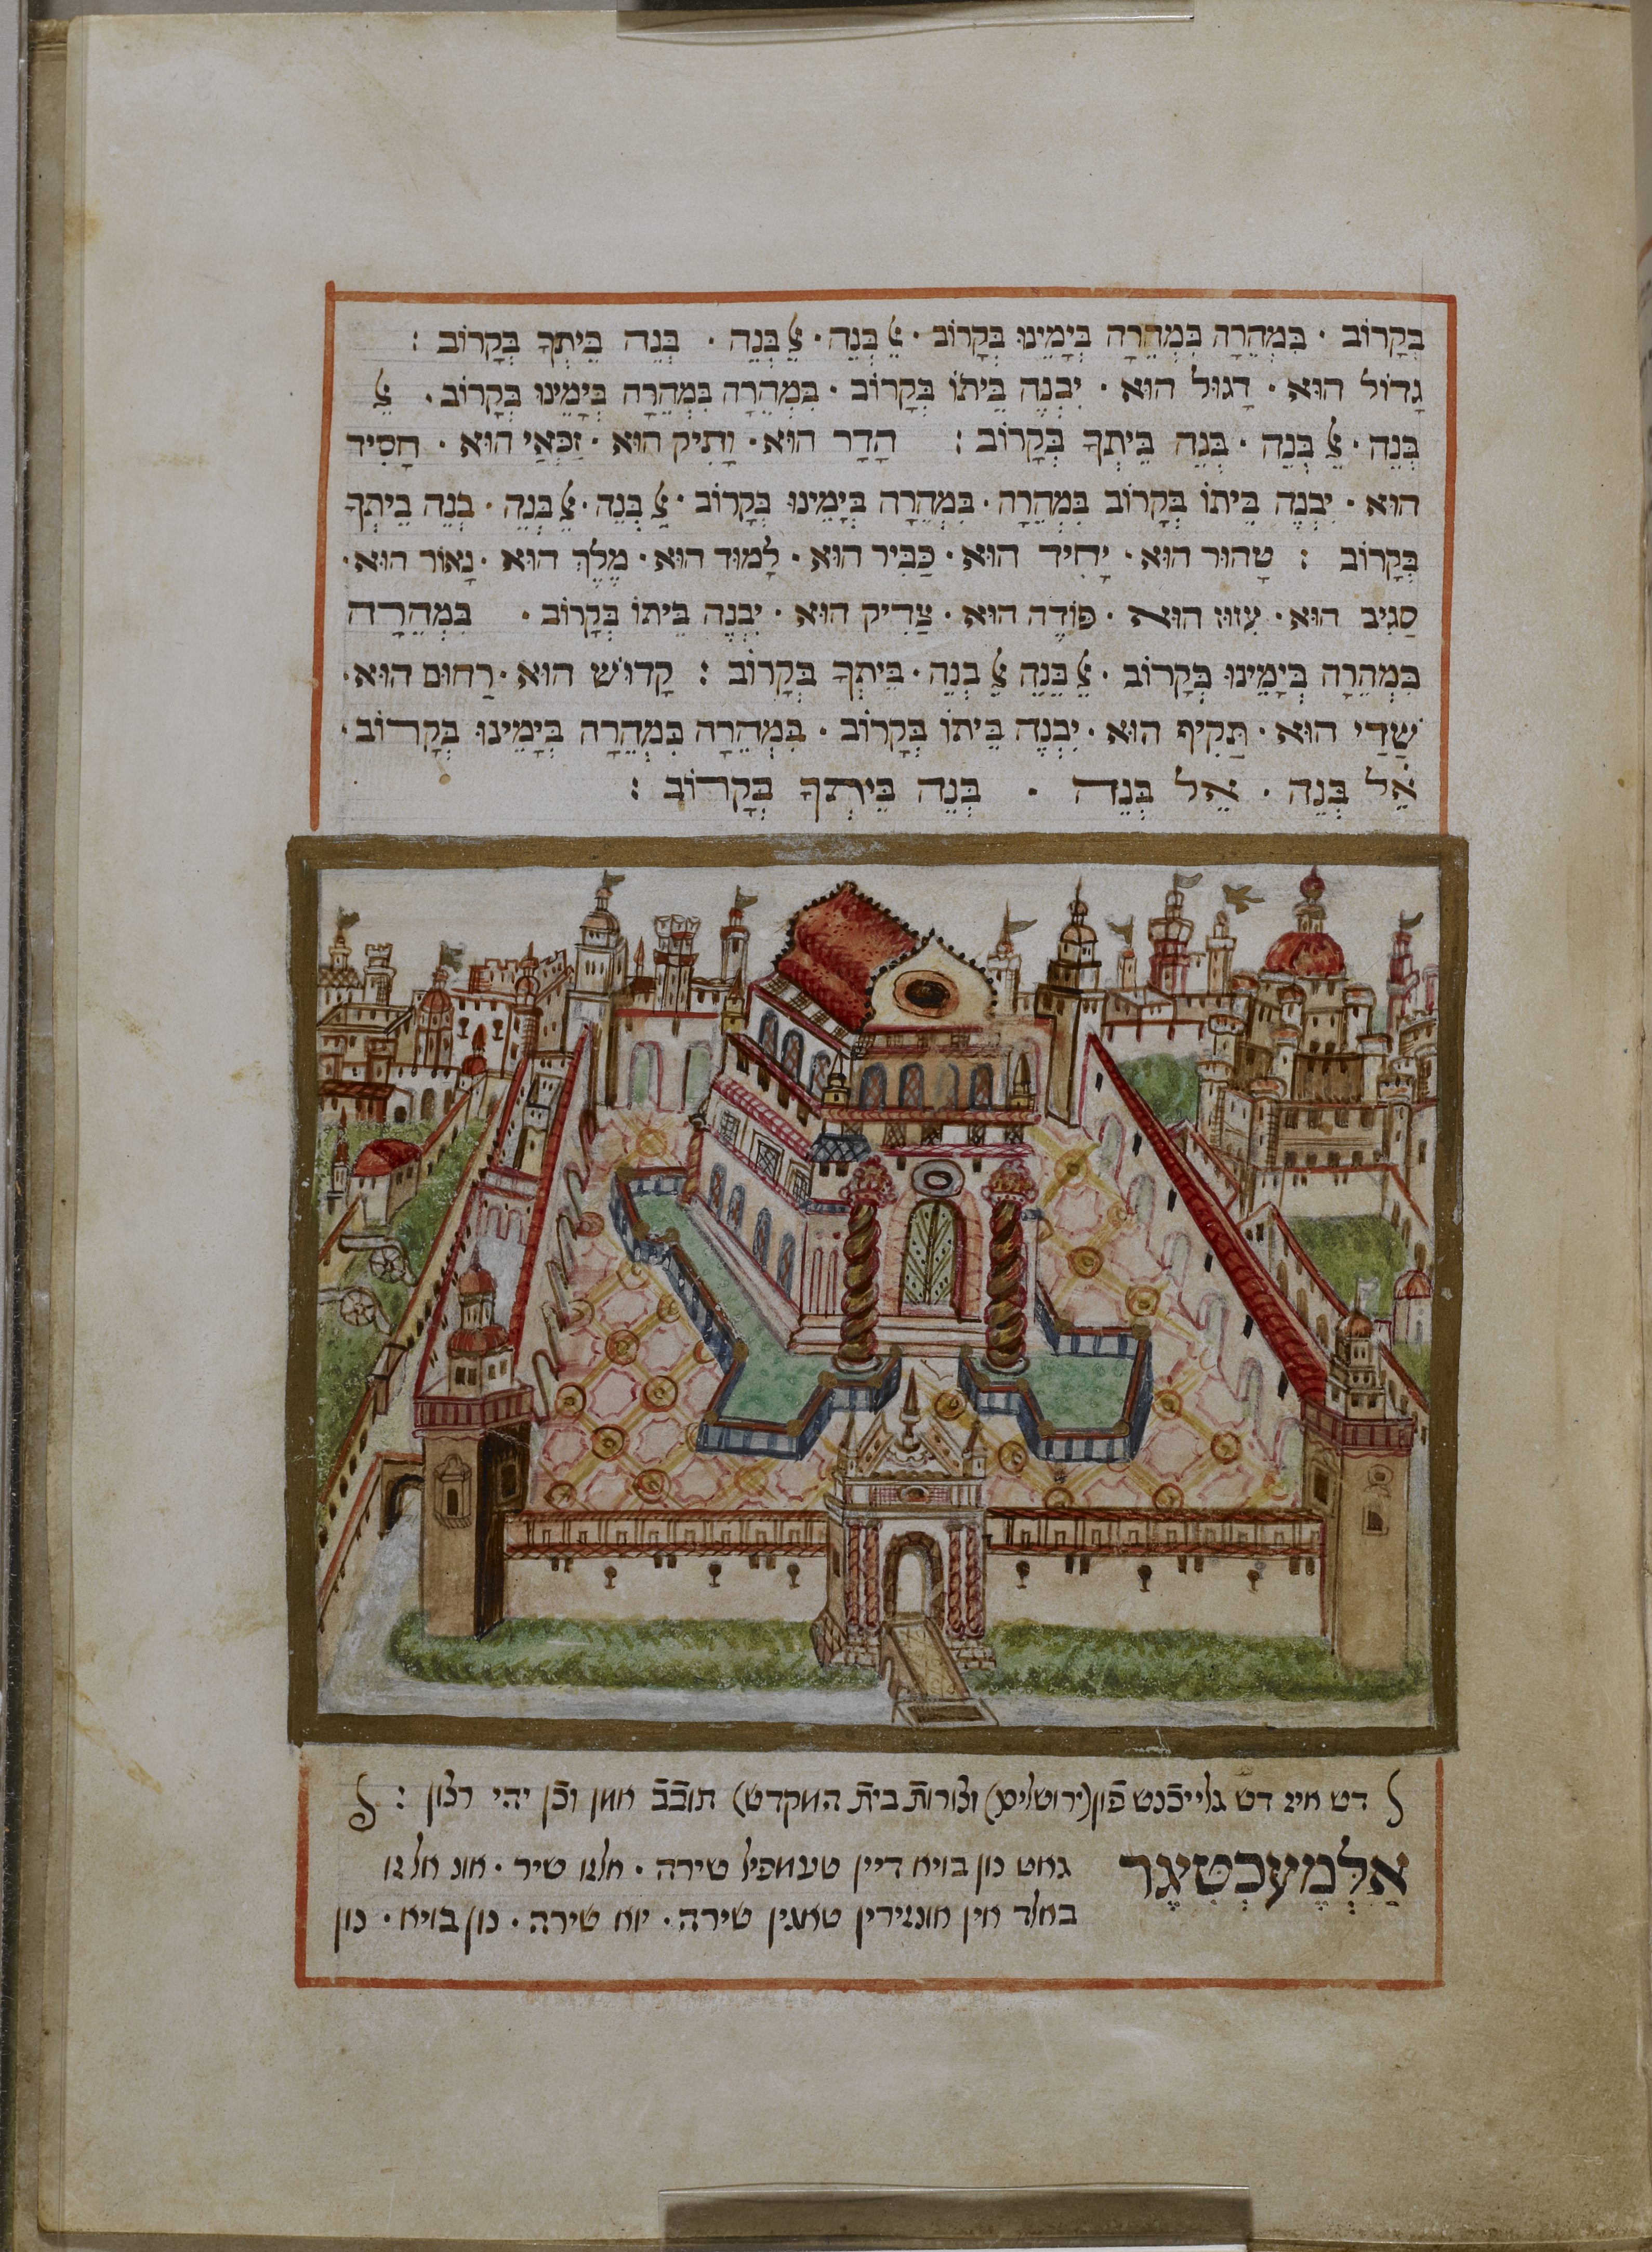 בְּקָרוֹב · בִּמְהֵרָה בִּמְהֵרָה בְּיָמֵינוּ בְּקָרוֹב · אֵל בְּנֵה · אֵל בְּנֵה · בְּנֵה בֵּיתְךָ בְּקָרוֹב :
גָדוֹל הוּא · דָגוּל הוּא · יִבְנֶה בֵּיתוֹ בְּקָרוֹב · בִּמְהֵרָה בִּמְהֵרָה בְּיָמֵינוּ בְּקָרוֹב · אֵל
בְּנֵה · אֵל בְּנֵה · בְּנֵה בֵּיתְךָ בְּקָרוֹב : הָדָר הוּא · וָתִיק הוּא · זַכַּאי הוּא · חָסִיד
הוּא · יִבְנֶה בֵּיתוֹ בְּקָרוֹב בִּמְהֵרָה · בִּמְהֵרָה בְּיָמֵינוּ בְּקָרוֹב · אֵל בְּנֵה · אֵל בְּנֵה · בְּנֵה בֵּיתְךָ
בְּקָרוֹב : טָהוּר הוּא · יָחִיד הוּא · כַּבִּיר הוּא · לָמוּד הוּא · מֶלֶךְ הוּא · נָאוֹר הוּא ·
סַגִיב הוּא · עִזּוּז הוּא · פּוֹדֶה הוּא · צַדִיק הוּא · יִבְנֶה בֵּיתוֹ בְּקָרוֹב · בִּמְהֵרָה
בִּמְהֵרָה בְּיָמֵינוּ בְּקָרוֹב · אֵל בְּנֵה אֵל בְּנֵה · בֵּיתְךָ בְּקָרוֹב : קָדוֹשׁ הוּא · רַחוּם הוּא ·
שַׁדַּי הוּא · תַּקִיף הוּא · יִבְנֶה בֵּיתוֹ בְּקָרוֹב · בִּמְהֵרָה בִּמְהֵרָה בְּיָמֵינוּ בְּקָרוֹב ·
אֵל בְּנֵה · אֵל בְּנֵה · בְּנֵה בֵּיתְךָ בְּקָרוֹב :
דש איז דש גלייכנש פון (ירושלים) וצורות בית המקדש) תובב אמן וכן יהי רצון :
אַלְמֶעכְטִיגֶר גאט נון בויא דיין טעמפיל שירה · אלזו שיר · אונ אלזו
באלד אין אונזירין טאגין שירה · יוא שירה · נון בויא · נון